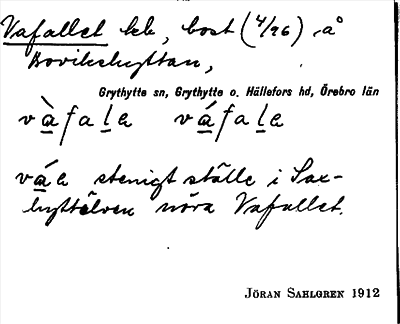 Vafallet lek, bost (4/96) å
Rovikshyttan,
Grythytte sn, Grythytte o. Hällefors hd, Örebro län
vàfala váfala
váa stenigt ställe i Sax-
hyttälven nära Vafallet.
JÖRAN SAHLGREN 1912